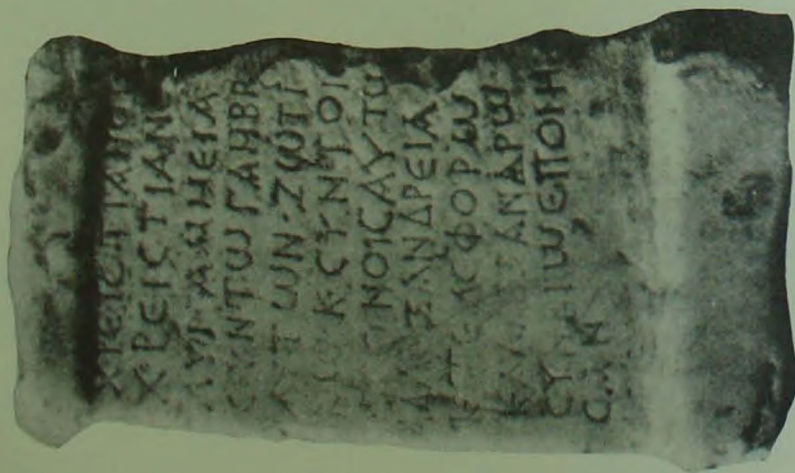 ΧΡΕΙCΤΙΑΝΟΙ
ΧΡΕΙCΤΙΑΝΟ
ΑΥΡ ΑΜΜΕΙΑ
CΥΝΤΩΓΑΜΒΡ
ΑΥΤΩΝ·ΖΩΤΙ
ΚCΥΝΤΟΙ
ΝΟΙCΑΥΤΩ
ΑΛΕΞΑΝΔΡΕΙΑ
ΤΕΛΕCΦΟΡΩ
ΑΛΕΞΑΝΔΡΩ
CΥΝΒΙΩΕΠΟΙΗ
CΑΝ